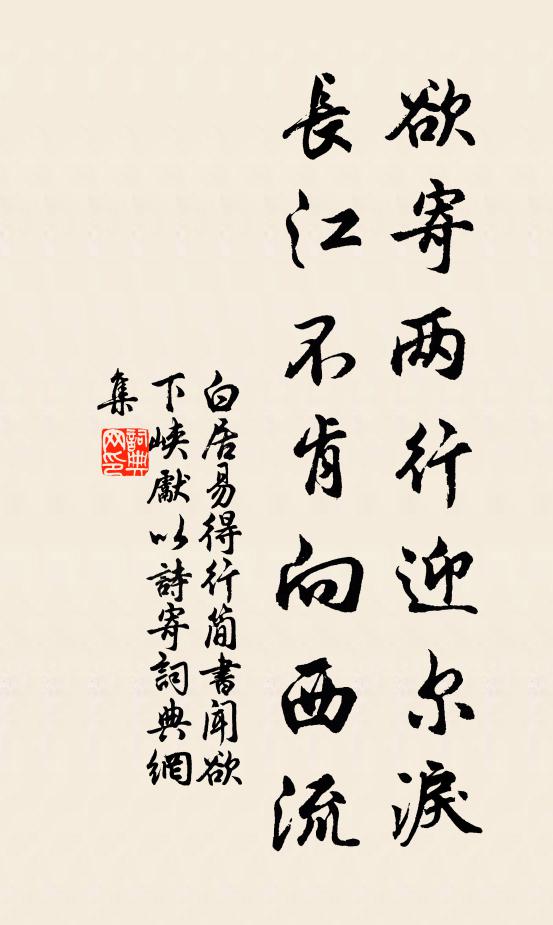 欲寄两行迎尔淚
長江不肯向西流
白居易得行简書闻欲
下峡獻以詩寄詞典網
集
詞典网印